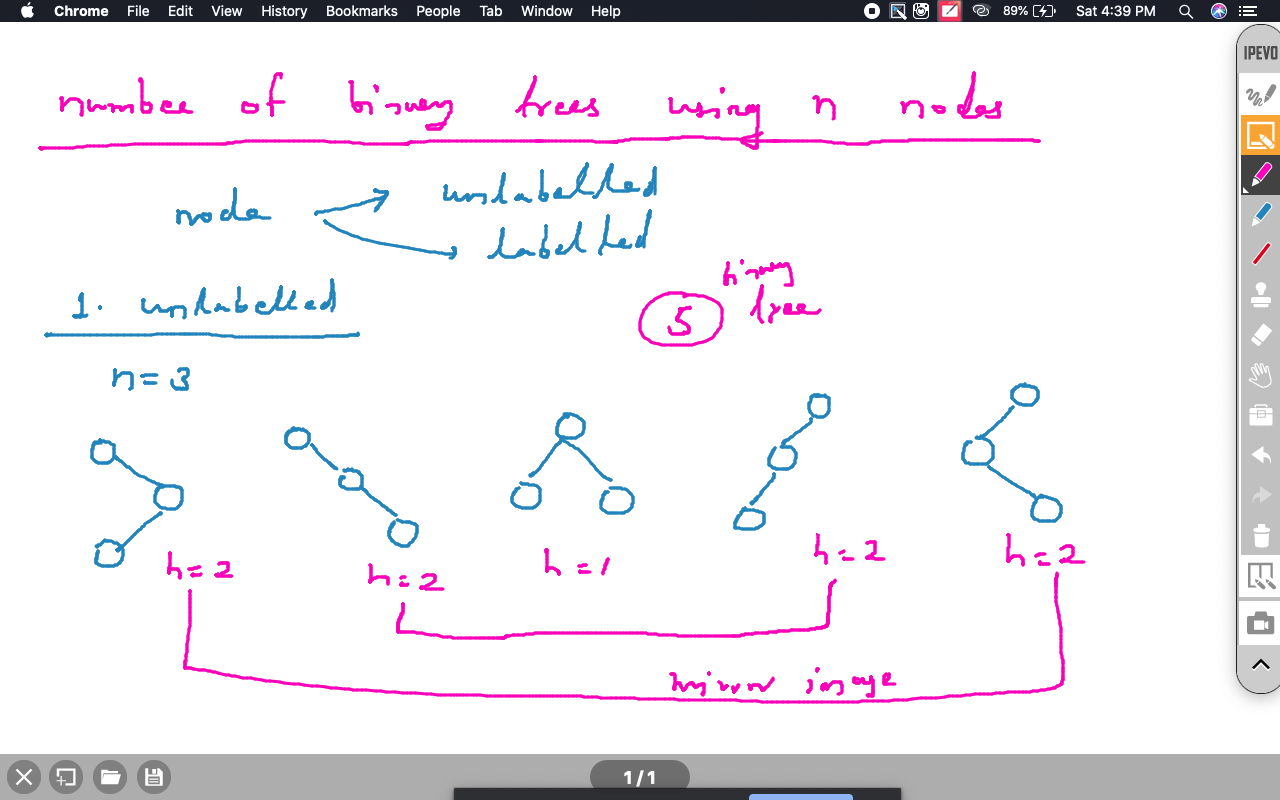 Chrome File Edit View History Bookmarks People Tab Window Help 89% Sat 4:39 PM
IPEVO
number of binary trees using n nodes
node
unlabelled
labelled
1. unlabelled
5 binary tree
n=3
h=2 h=2 h=1 h=2 h=2
mirror image
1/1